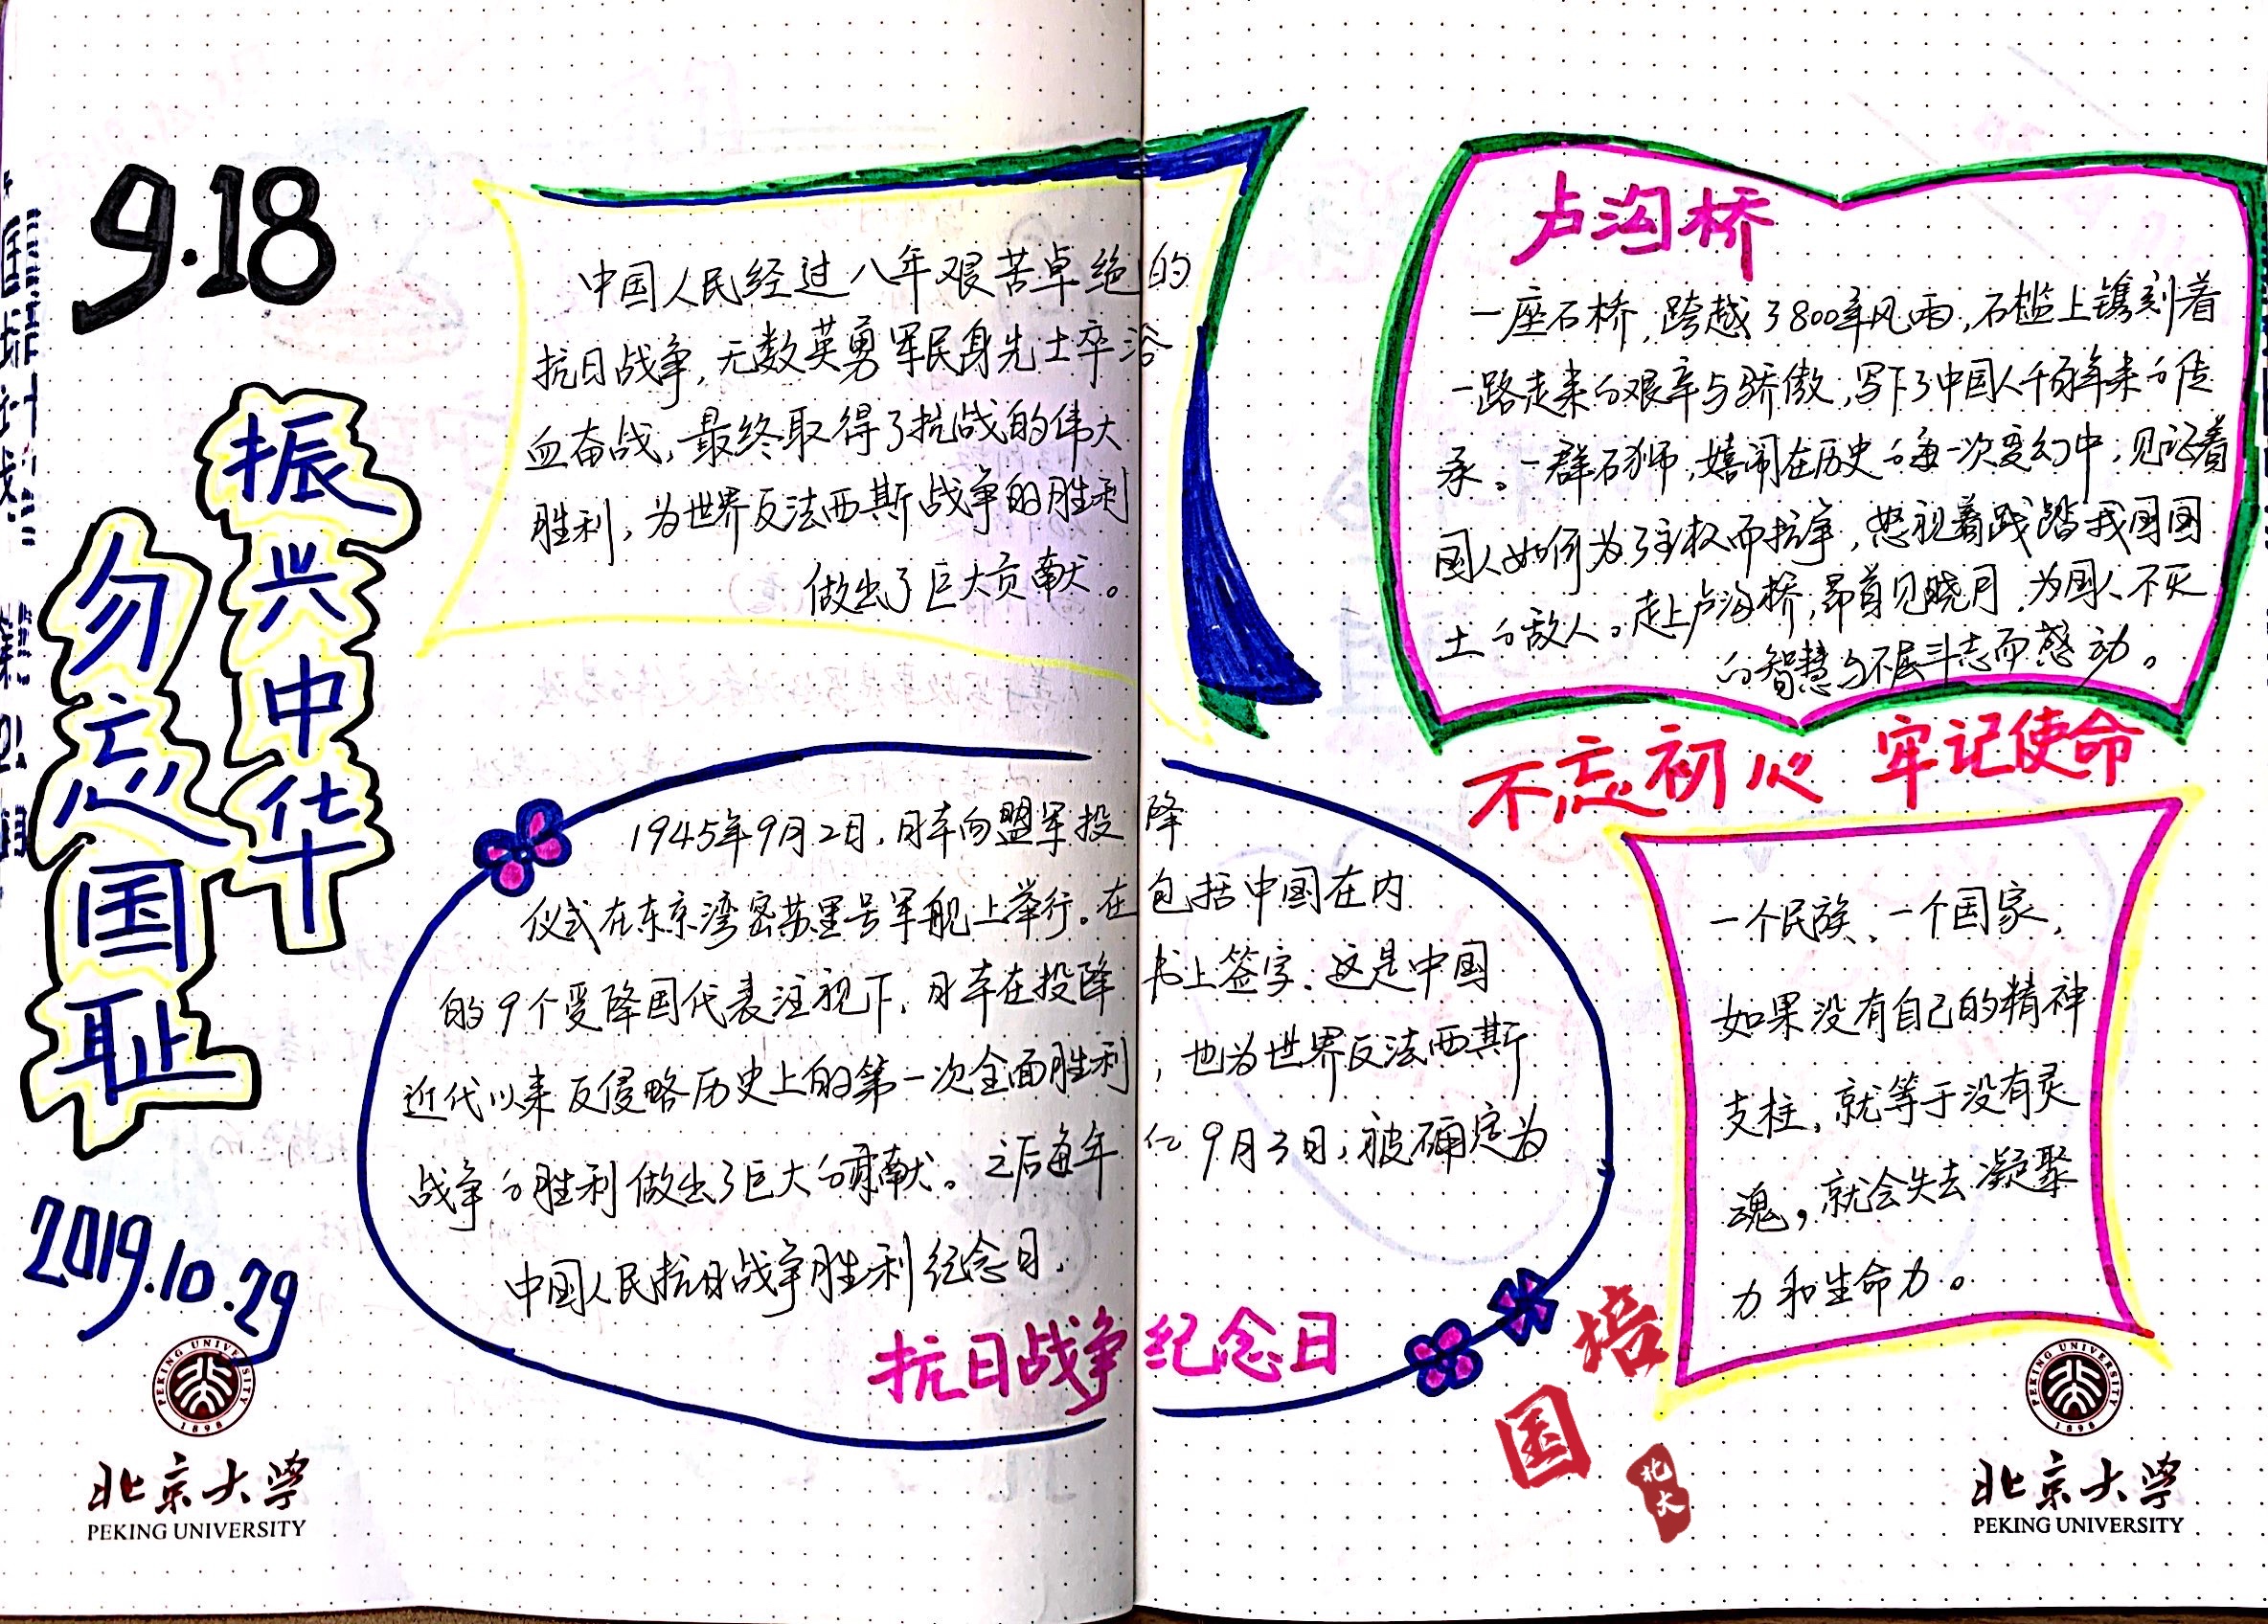 9.18
振兴中华
勿忘国耻
2019.10.29
PEKING UNIVERSITY
1898
北京大学
PEKING UNIVERSITY
中国人民经过八年艰苦卓绝的
抗日战争,无数英勇军民身先士卒浴
血奋战,最终取得了抗战的伟大
胜利,为世界反法西斯战争的胜利
做出了巨大贡献。
1945年9月2日,日本向盟军投降
仪式在东京湾密苏里号军舰上举行。在包括中国在内
的9个受降国代表注视下,日本在投降书上签字.这是中国
近代以来反侵略历史上的第一次全面胜利,也为世界反法西斯
战争的胜利做出了巨大的贡献。之后每年的9月3日,被确定为
中国人民抗日战争胜利纪念日.
抗日战争纪念日
卢沟桥
一座石桥,跨越了800年风雨,石槛上镌刻着
一路走来的艰辛与骄傲,写下了中国人千百年来的传
承。一群石狮,嬉闹在历史的每一次变幻中,见证着
国人如何为了主权而抗争,怒视着践踏我国国
土的敌人。走上卢沟桥,昂首见晓月,为国人不灭
的智慧与不屈斗志而感动。
不忘初心 牢记使命
一个民族,一个国家,
如果没有自己的精神
支柱,就等于没有灵
魂,就会失去凝聚
力和生命力。
培
国
北大
PEKING UNIVERSITY
1898
北京大学
PEKING UNIVERSITY